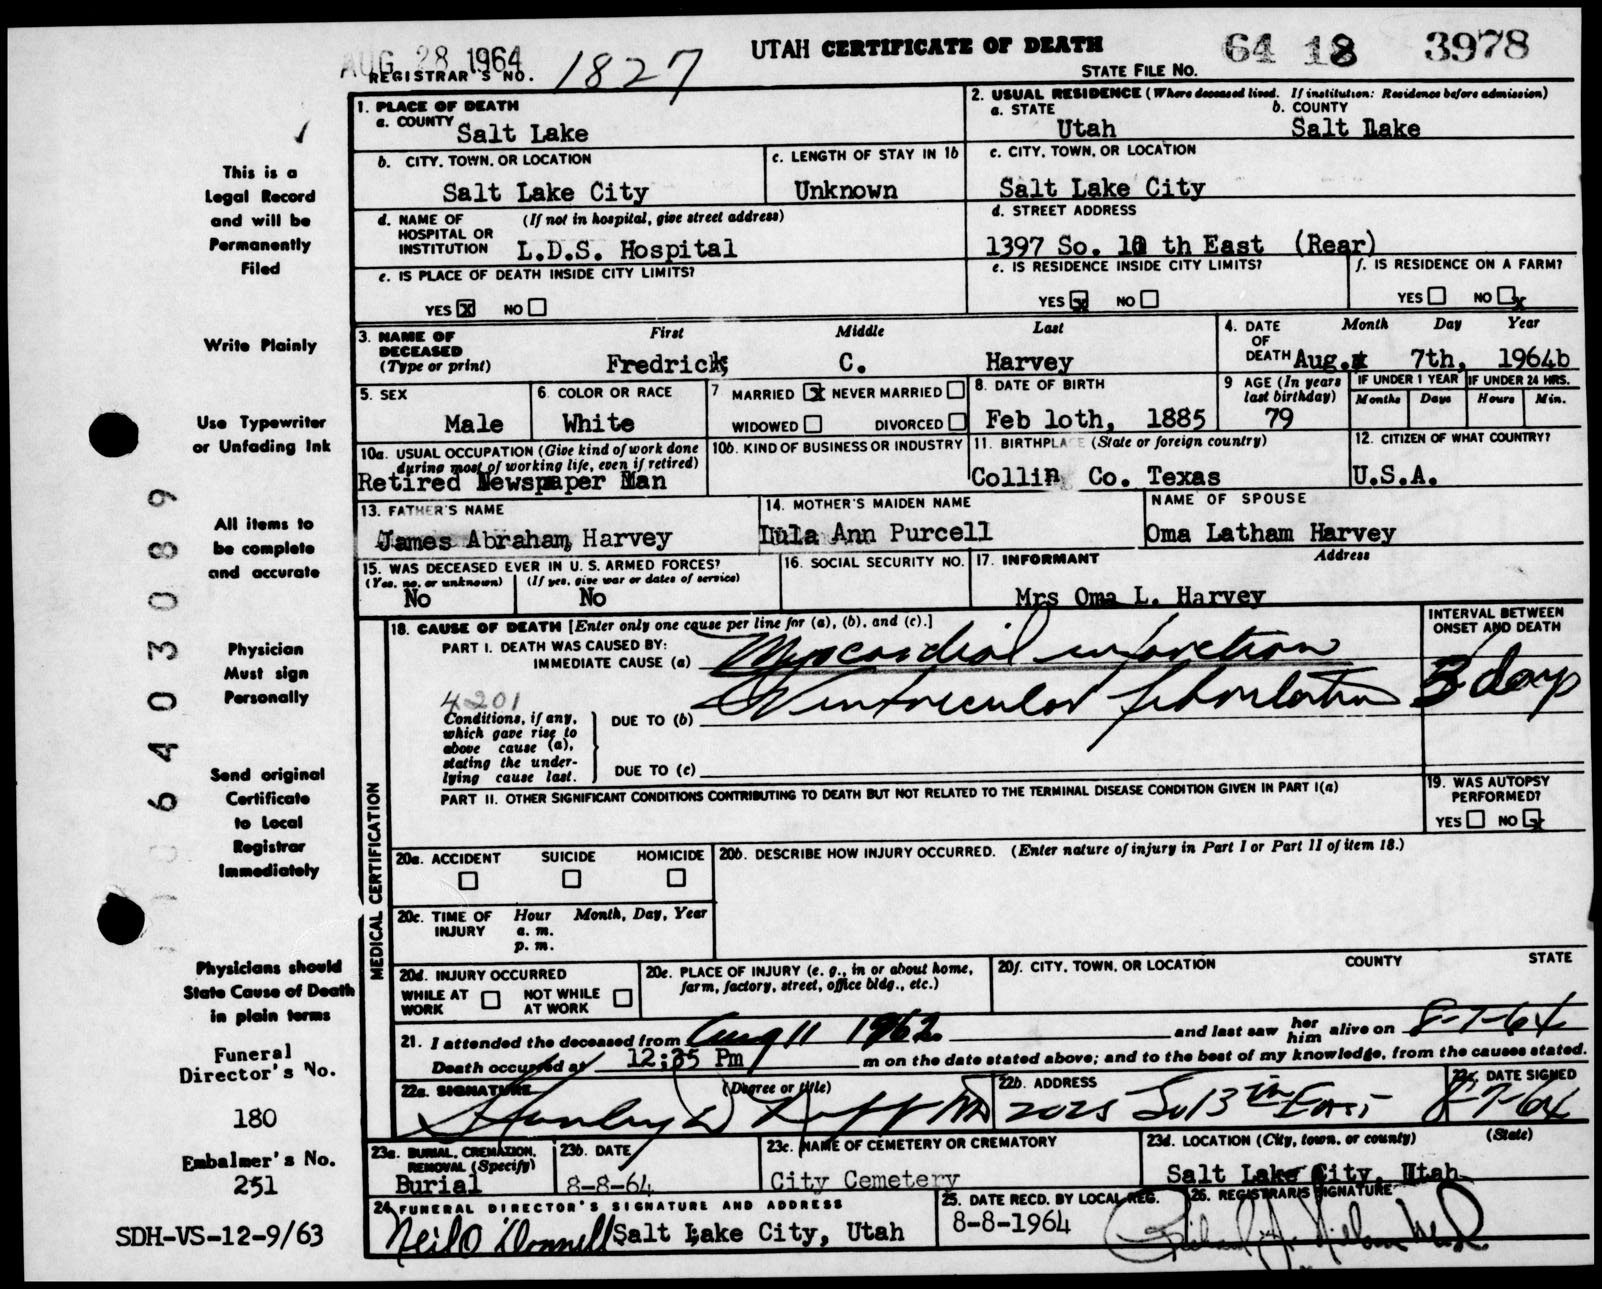 AUG 28 1964
UTAH CERTIFICATE OF DEATH
64 18 3978
REGISTRAR'S NO. 1827
STATE FILE NO.
1. PLACE OF DEATH
a. COUNTY
Salt Lake
2. USUAL RESIDENCE (Where deceased lived. If institution: Residence before admission)
a. STATE
Utah
b. COUNTY
Salt Lake
b. CITY, TOWN, OR LOCATION
Salt Lake City
c. LENGTH OF STAY IN 1b
Unknown
c. CITY, TOWN, OR LOCATION
Salt Lake City
d. NAME OF HOSPITAL OR INSTITUTION
(If not in hospital, give street address)
L.D.S. Hospital
d. STREET ADDRESS
1397 So. 10 th East (Rear)
e. IS PLACE OF DEATH INSIDE CITY LIMITS?
YES x NO
e. IS RESIDENCE INSIDE CITY LIMITS?
YES x NO
f. IS RESIDENCE ON A FARM?
YES NO x
3. NAME OF DECEASED
(Type or print)
First Middle Last
Fredrick C. Harvey
4. DATE OF DEATH
Month Day Year
Aug. 7th, 1964
5. SEX
Male
6. COLOR OR RACE
White
7 MARRIED x NEVER MARRIED
WIDOWED DIVORCED
8. DATE OF BIRTH
Feb loth, 1885
9 AGE (In years last birthday)
79
IF UNDER 1 YEAR
Months Days
IF UNDER 24 HRS.
Hours Min.
10a. USUAL OCCUPATION (Give kind of work done
during most of working life, even if retired)
Retired Newspaper Man
10b. KIND OF BUSINESS OR INDUSTRY
11. BIRTHPLACE (State or foreign country)
Collin Co. Texas
12. CITIZEN OF WHAT COUNTRY?
U.S.A.
13. FATHER'S NAME
James Abraham Harvey
14. MOTHER'S MAIDEN NAME
Lula Ann Purcell
NAME OF SPOUSE
Oma Latham Harvey
15. WAS DECEASED EVER IN U. S. ARMED FORCES?
(Yes, no, or unknown)
No
(If yes, give war or dates of service)
No
16. SOCIAL SECURITY NO.
17. INFORMANT
Address
Mrs Oma L. Harvey
MEDICAL CERTIFICATION
18. CAUSE OF DEATH [Enter only one cause per line for (a), (b), and (c).]
PART I. DEATH WAS CAUSED BY:
IMMEDIATE CAUSE (a)
Myocardial infarction
INTERVAL BETWEEN
ONSET AND DEATH
3 days
4201
Conditions, if any,
which gave rise to
above cause (a),
stating the under-
lying cause last.
DUE TO (b)
Ventricular fibrillation
DUE TO (c)
PART II. OTHER SIGNIFICANT CONDITIONS CONTRIBUTING TO DEATH BUT NOT RELATED TO THE TERMINAL DISEASE CONDITION GIVEN IN PART I(a)
19. WAS AUTOPSY
PERFORMED?
YES NO x
20a. ACCIDENT SUICIDE HOMICIDE
20b. DESCRIBE HOW INJURY OCCURRED. (Enter nature of injury in Part I or Part II of item 18.)
20c. TIME OF INJURY
Hour Month, Day, Year
a. m.
p. m.
20d. INJURY OCCURRED
WHILE AT WORK
NOT WHILE AT WORK
20e. PLACE OF INJURY (e. g., in or about home,
farm, factory, street, office bldg., etc.)
20f. CITY, TOWN, OR LOCATION COUNTY STATE
21. I attended the deceased from Aug 11 1962 and last saw her him alive on 8-7-64
Death occurred at 12:35 Pm m on the date stated above; and to the best of my knowledge, from the causes stated.
22a. SIGNATURE (Degree or title)
22b. ADDRESS
2025 So 13th East
22c. DATE SIGNED
8-7-64
23a. BURIAL, CREMATION,
REMOVAL (Specify)
Burial
23b. DATE
8-8-64
23c. NAME OF CEMETERY OR CREMATORY
City Cemetery
23d. LOCATION (City, town, or county) (State)
Salt Lake City, Utah
24. FUNERAL DIRECTOR'S SIGNATURE AND ADDRESS
Neil O'Donnell Salt Lake City, Utah
25. DATE RECD. BY LOCAL REG.
8-8-1964
26. REGISTRAR'S SIGNATURE
This is a
Legal Record
and will be
Permanently
Filed
Write Plainly
Use Typewriter
or Unfading Ink
All items to
be complete
and accurate
Physician
Must sign
Personally
Send original
Certificate
to Local
Registrar
Immediately
Physicians should
State Cause of Death
in plain terms
Funeral
Director's No.
180
Embalmer's No.
251
SDH-VS-12-9/63
0 6 4 0 3 0 8 9